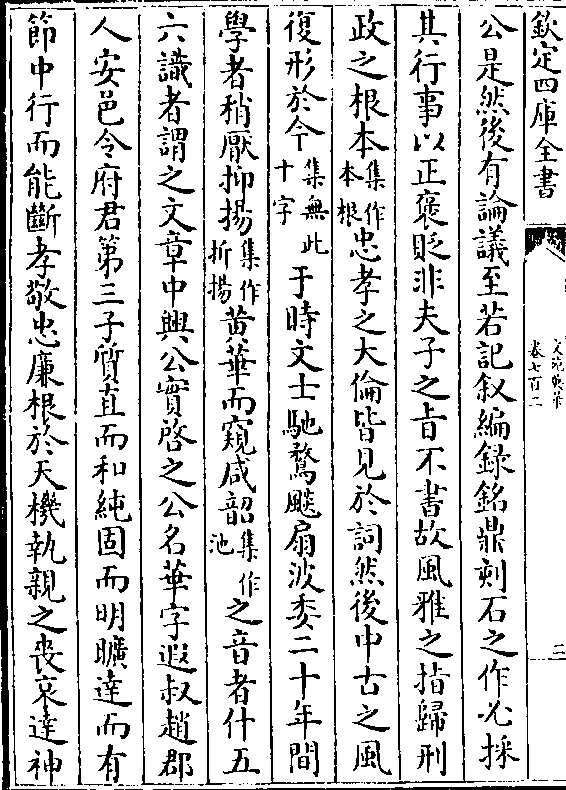 欽定四庫全書
文苑英華
卷七百二
二
公是然後有論議至若記叙編錄銘鼎刻石之作必採
其行事以正褒貶非夫子之旨不書故風雅之指歸刑
政之根本集作本根忠孝之大倫皆見於詞然後中古之風
復形於今集無此十字于時文士馳騖飈扇波委二十年間
學者稍厭抑揚集作折揚黄華而窺咸韶集作池之音者什五
六識者謂之文章中興公實啓之公名華字遐叔趙郡
人安邑令府君第三子質直而和純固而明曠達而有
節中行而能斷孝敬忠廉根於天機執親之喪哀達神